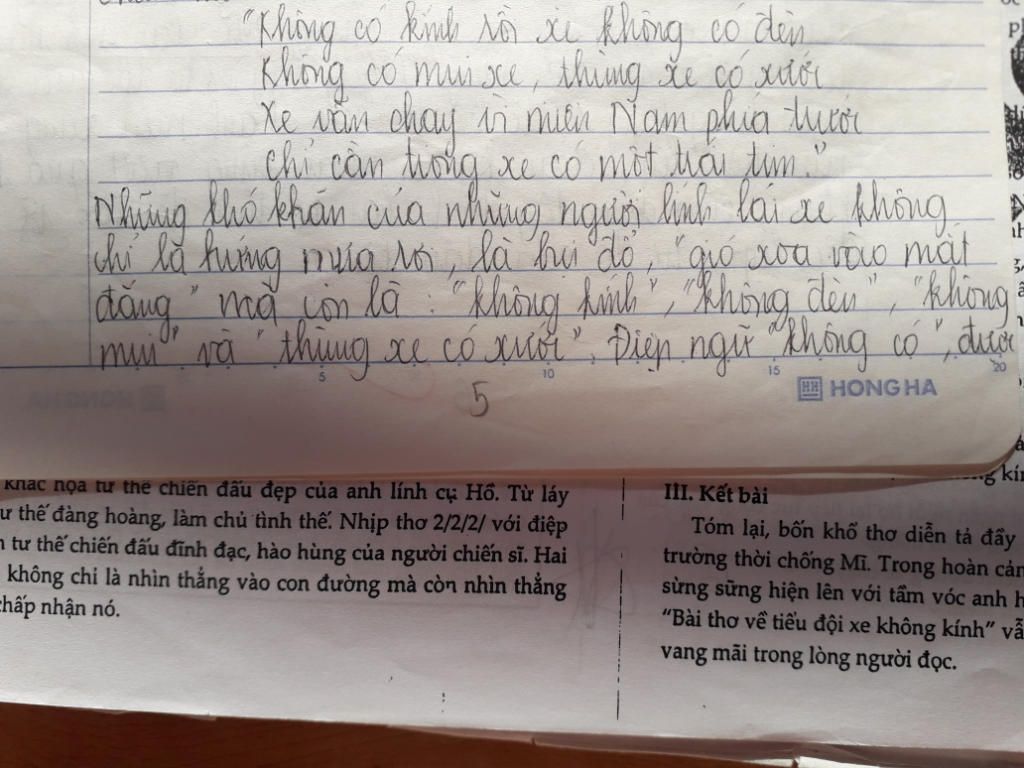 "Không có kính rồi xe không có đèn
Không có mui xe, thùng xe có xước
Xe vẫn chạy vì miền Nam phía trước
Chỉ cần trong xe có một trái tim."
Những khó khăn của những người lính lái xe không
chỉ là tướng mưa rơi, là bụi đỏ, "gió xoa vào mắt
đắng" mà còn là: "không kính", "không đèn", "không
mui" và "thùng xe có xước". Điệp ngữ "không có", được
5
10
15
20
5
HONG HA
khắc họa tư thế chiến đấu đẹp của anh lính cụ Hồ. Từ láy
ư thế đàng hoàng, làm chủ tình thế. Nhịp thơ 2/2/2/ với điệp
tư thế chiến đấu đĩnh đạc, hào hùng của người chiến sĩ. Hai
không chỉ là nhìn thẳng vào con đường mà còn nhìn thẳng
chấp nhận nó.
III. Kết bài
Tóm lại, bốn khổ thơ diễn tả đầy
trường thời chống Mĩ. Trong hoàn cản
sừng sững hiện lên với tầm vóc anh h
"Bài thơ về tiểu đội xe không kính" vẫ
vang mãi trong lòng người đọc.